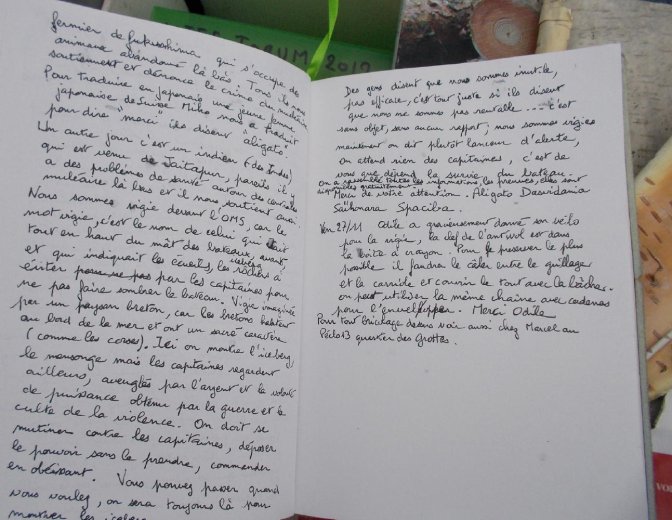 FORUM 2012
fermier de fukushima qui s'occupe de
animaux abandonné là bas. Tous ils nous
soutiennent et dénonce le crime du nucléaire
Pour traduire en japonais une jeune femme
japonaise de Suisse Miho nous a traduit
pour dire "merci" ils disent "aligato".
Un autre jour c'est un indien (des Indes)
qui est venu de Jaitapur, pareils il y
a des problèmes de santé autour des centrales
nucléaire là bas et il nous soutient aussi.
Nous sommes vigie devant l'OMS, car le
mot vigie, c'est le nom de celui qui était
tout en haut du mât des bateaux, avant,
et qui indiquait les écueils, les rochers à
éviter par les capitaines pour
ne pas faire sombrer le bateau. Vigie imaginée
par un paysan breton, car les bretons habitent
au bord de la mer et ont un sacré caractère
(comme les corses). Ici on montre l'iceberg,
le mensonge mais les capitaines regardent
ailleurs, aveuglés par l'argent et la volonté
de puissance obtenu par la guerre et le
culte de la violence. On doit se
mutiner contre les capitaines, déposer
le pouvoir sans le prendre, commander
en obéissant. Vous pouvez passer quand
vous voulez, on sera toujours là pour
montrer les
Des gens disent que nous sommes inutile,
pas efficace, c'est tout juste si ils disent
que nous ne sommes pas rentable .... C'est
sans objet, sans aucun rapport, nous sommes vigies
maintenant on dit plutôt lanceur d'alerte,
on attend rien des capitaines, c'est de
vous que dépend la survie du bateau.
On a rassemblé toutes les informations, les preuves, elles sont
disponibles gratuitement.
Merci de votre attention. Aligato Dasvidania
Saïhonara Spaciba.
Ven 27/11 Odile a gracieusement donné son vélo
pour la vigie, la clef de l'antivol est dans
la boîte à crayon. Pour le préserver le plus
possible il faudra le caler entre le grillage
et la carriole et couvrir le tout avec la bâche.
on peut utiliser la même chaîne avec cadenas
pour l'envelopper. Merci Odile
Pour tout bricolage dessus voir aussi chez Marcel au
Péclo13 quartier des Grottes.